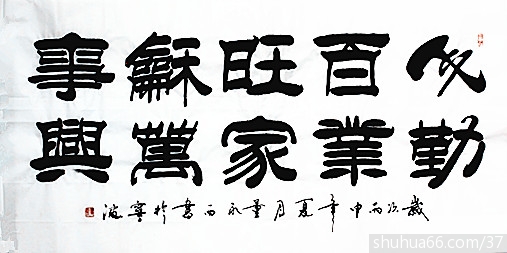 人勤
百業
旺家
龢萬
事興
歲次丙申年夏月書於寧波
shuhua66.com/37